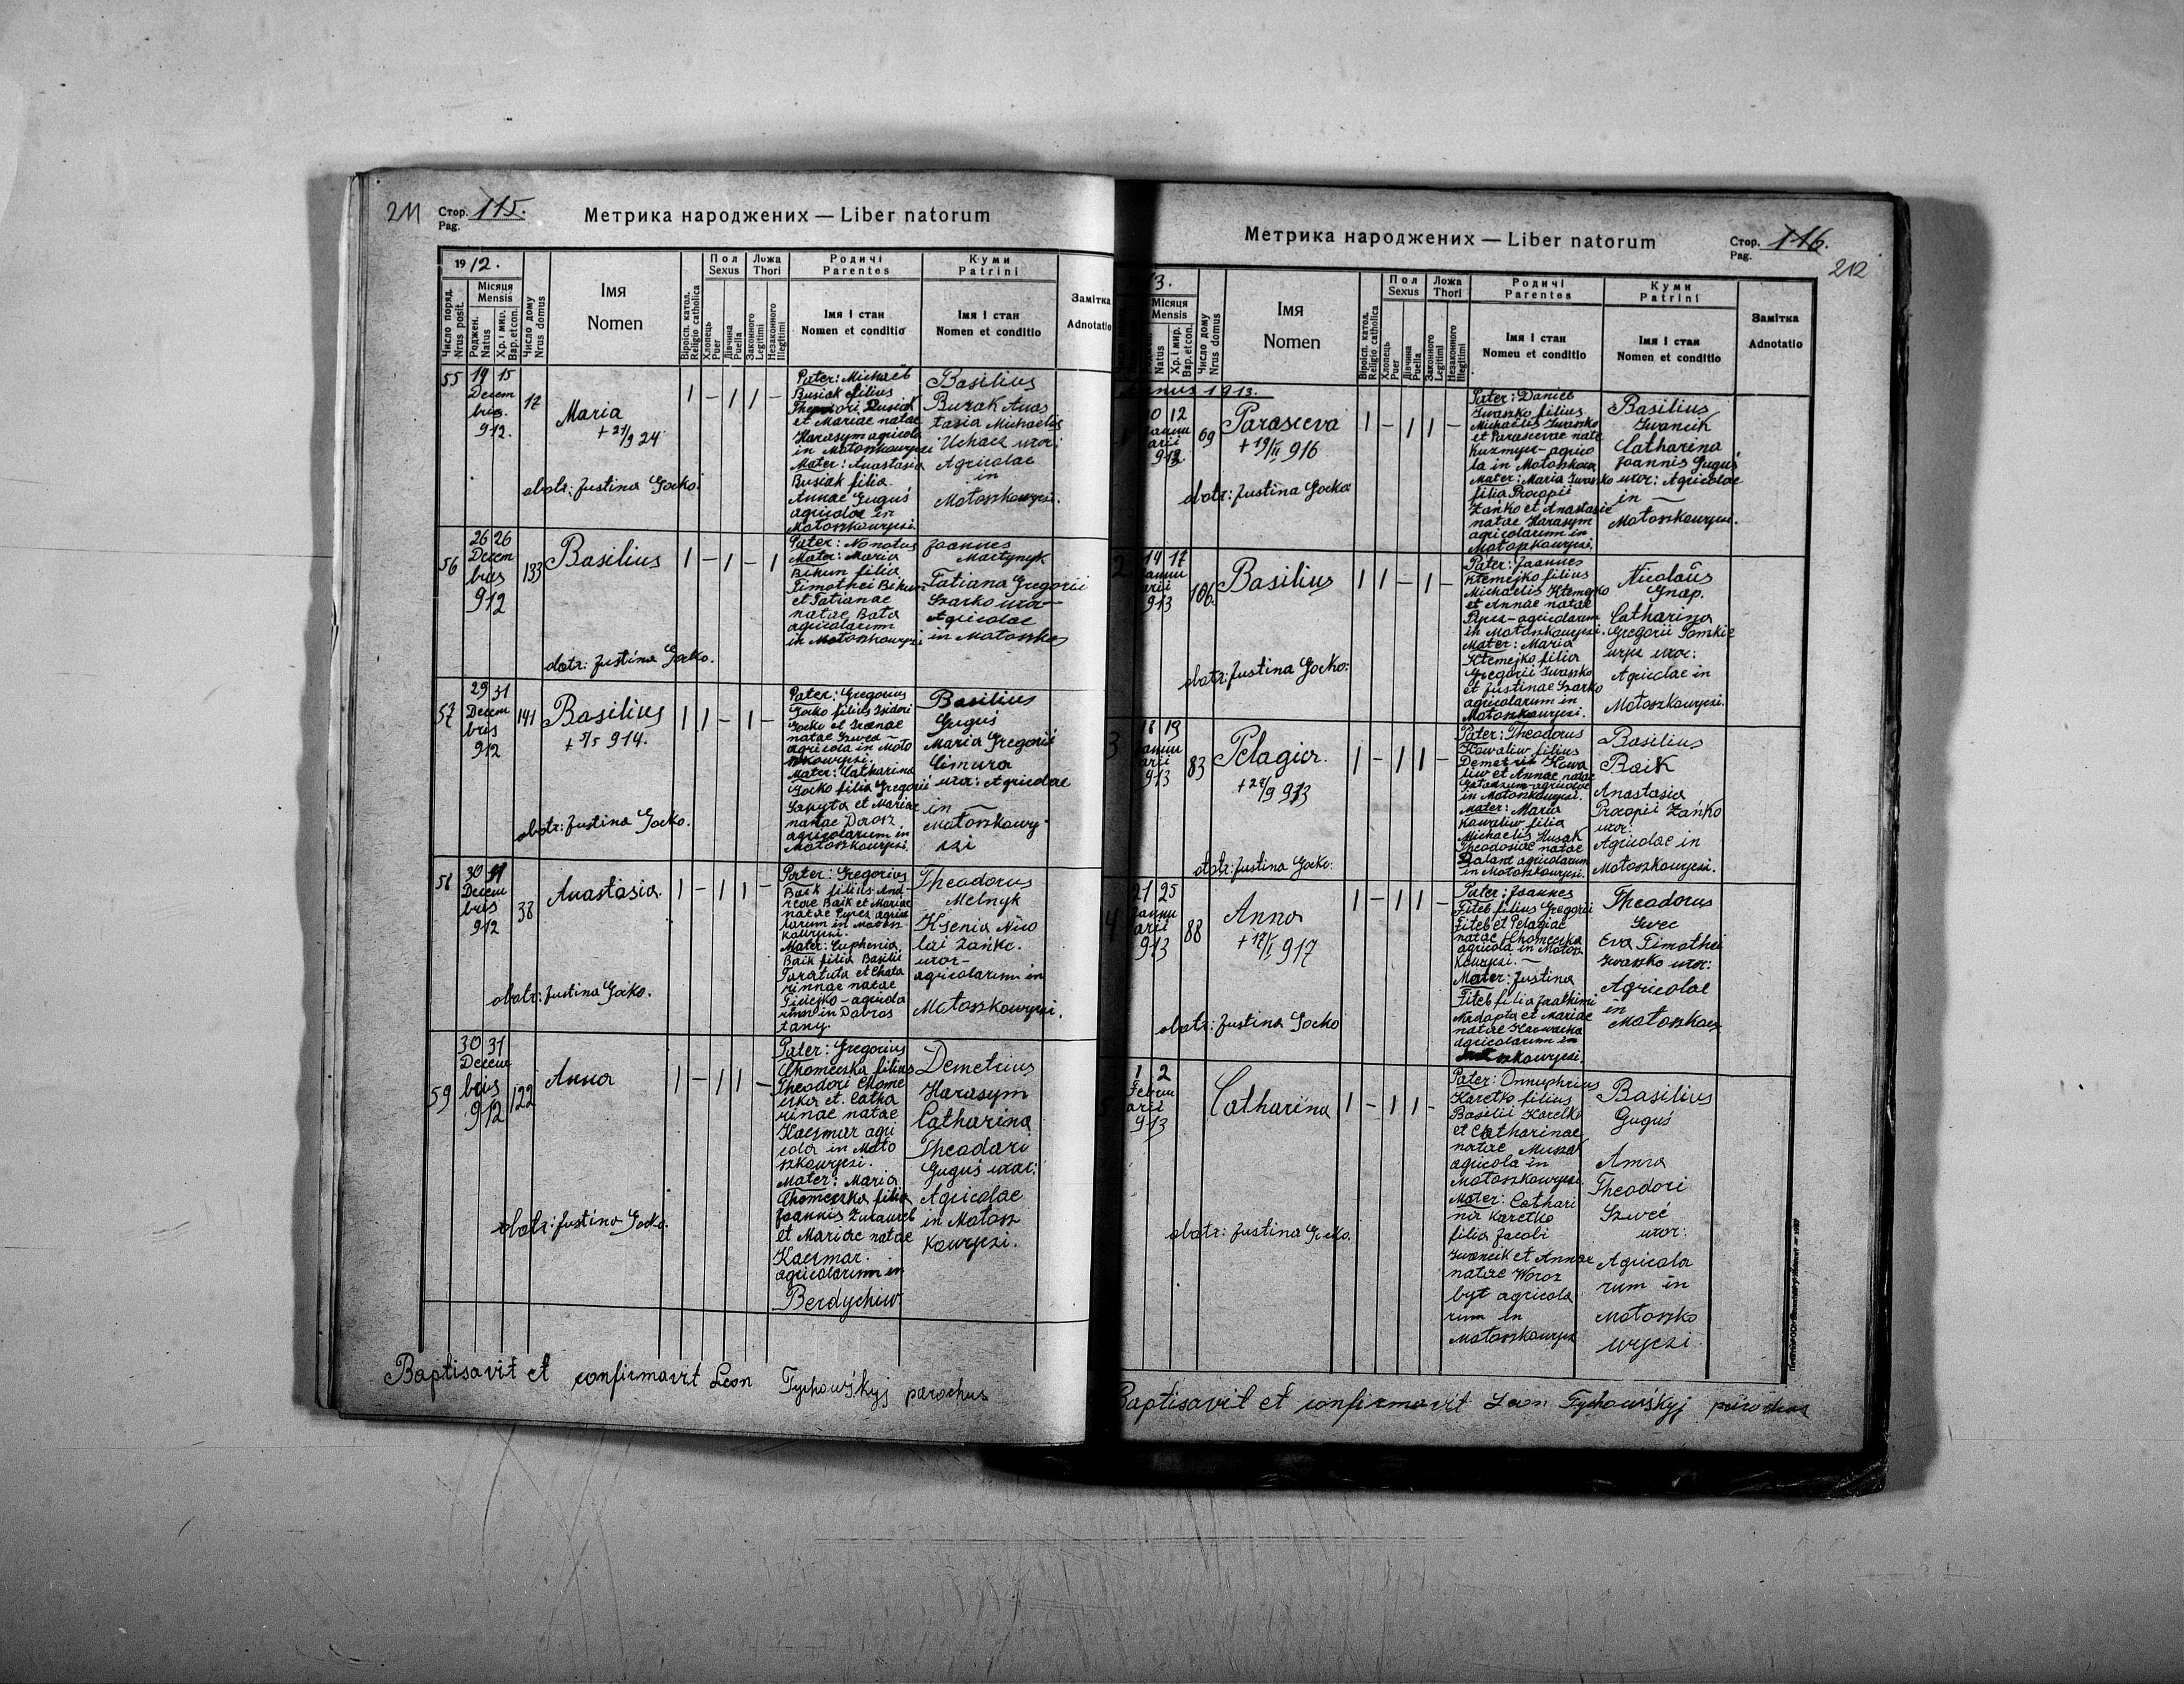 211
Стор. 115.
Pag.
Метрика народжених — Liber natorum
1912.
Число поряд. Nrus posit.
Місяця Mensis
Роджен. Natus
Хр. і мир. Bap. et con.
Число дому Nrus domus
Імя
Nomen
Віроісп. катол. Religio catholica
Пол Sexus
Хлопець Puer
Дівчина Puella
Ложа Thori
Законного Legitimi
Незаконного Illegitimi
Родичі
Parentes
Імя і стан
Nomen et conditio
Куми
Patrini
Імя і стан
Nomen et conditio
Замітка
Adnotatio
55
19 15
Decem
bris.
912.
17
Maria
+ 21/9 24
1 – 1 1 –
obstr: Justina Gocko.
Pater: Michaël
Busiak filius
Theodori Busiak
et Mariae natae
Harasym agricola
in Motoszkowyczi
Mater: Anastasia
Busiak filia
Annae Guguś
agricolae in
Motoszkowyczi.
Basilius
Buzak Anas
tasia Michaelis
uxor:
Agricolae
in
Motoszkowyczi.
56
26 26
Decem
bris
912
133
Basilius
1 – 1 – 1
obstr: Justina Gocko.
Pater: Nonatus
Mater: Maria
Bihun filia
Timothei Bihun
et Tatianae
natae Bata
agricolarum
in Motoszkowyczi
Joannes
Martynyk
Tatiana Gregorii
Szarko uxor
Agricolae
in Motoszko
57
29 31
Decem
bris
912
141
Basilius
+ 5/5 914.
1 1 – 1 –
obstr: Justina Gocko.
Pater: Gregorius
Gocko filius Isidori
Gocko et Irenae
natae Szwed –
agricola in Moto
szkowyczi.
Mater: Catharina
Gocko filia Gregorii
Sapyta et Mariae
natae Dorosz
agricolarum in
Motoszkowyczi.
Basilius
Guguś
Maria Gregorii
Cimura
uxor: Agricolae
in
Motoszkowy
czi
58
30 31
Decem
bris
912
38
Anastasia.
1 – 1 1 –
obstr: Justina Gocko.
Pater: Gregorius
Baik filius And
reae Baik et Mariae
natae Pypez agrico
larum in Motosz
kowyczi.
Mater: Euphenia
Baik filia Basilii
Taratuta et Catha
rinnae natae
agricola
rum in Dobros
tany.
Theodorus
Melnyk
Ksenia Nico
lai Zańko.
uxor –
agricolarum in
Motoszkowyczi.
59
30 31
Decem
bris
912
122
Anna
1 – 1 1 –
obstr: Justina Gocko.
Pater: Gregorius
Chomeczka filius
Theodori Chome
czka et. Catha
rinae natae
Kaczmar agri
cola in Moto
szkowyczi.
Mater: Maria
Chomeczka filia
Joannis Zurawel
et Mariae natae
Kaczmar.
agricolarum in
Berdychiw
Demetrius
Harasym
Catharina
Theodori
Guguś uxor:
Agricolae
in Motosz
kowyczi.
Baptisavit et confirmavit Leon Tychowśkyj parochus
Метрика народжених — Liber natorum
Стор. 116.
Pag.
212
3.
Місяця Mensis
Natus
Хр. і мир. Bap. et con.
Число дому Nrus domus
Імя
Nomen
Віроісп. катол. Religio catholica
Пол Sexus
Хлопець Puer
Дівчина Puella
Ложа Thori
Законного Legitimi
Незаконного Illegitimi
Родичі
Parentes
Імя і стан
Nomeu et conditio
Куми
Patrini
Імя і стан
Nomen et conditio
Замітка
Adnotatio
nnus 1913.
10 12
Janu
arii
913.
69
Parasceva
+ 19/II 916
1 – 1 1 –
obstr: Justina Gocko
Pater: Daniel
Iwaszko filius
Michaelis Iwaszko
et Parascevae nate
Kuzmycz – agrico
la in Motoszkow
Mater: Maria Iwaszko
filia Procopii
Zańko et Anastasie
natae Harasym
agricolarum in
Motoszkowyczi.
Basilius
Iwancik
Catharina
Joannis Guguś
uxor: Agricolae
in
Motoszkowyczi.
2
14 17
Janu
arii
913
106
Basilius
1 1 – 1 –
obstr: Justina Gocko:
Pater: Joannes
Kłemejko filius
Michaelis Kłemejko
et Annae natae
Pypez – agricolarum
in Motoszkowyczi.
Mater: Maria
Kłemejko filia
Gregorii Iwaszko
et Justinae Szarko
agricolarum in
Motoszkowyczi.
Nicolaus
Gnap.
Catharina
Gregorii Tomkie
wycz uxor:
Agricolae in
Motoszkowyczi.
3
18 19
Janu
arii
913
83
Pelagia.
+ 27/9 913
1 – 1 1 –
obstr: Justina Gocko:
Pater: Theodorus
Kowaliw filius
Demetrii Kowa
liw et Annae natae
agricolae
in Motoszkowyczi.
Mater: Maria
Kowaliw filia
Michaelis Husak
Theodosiae natae
Balant agricolarum
in Motoszkowyczi.
Basilius
Baik
Anastasia
Procopii Zańko
uxor:
Agricolae in
Motoszkowyczi.
4
21 25
Janu
arii
913
88
Anna
+ 12/I 917
1 – 1 1 –
obstr: Justina Gocko
Pater: Joannes
Fitel filius Gregorii
Fitel et Pelagiae
natae Chomeczka
agricola in Motosz
kowyczi. –
Mater: Justina
Fitel filia Joachimi
Nadopta et Mariae
natae
agricolarum in
szkowyczi.
Theodorus
Szwec
Eva Timothei
Iwaszko uxor:
Agricolae
in
Motoszkow
5
1 2
Febru
arii
913
Catharina
1 – 1 1 –
obstr: Justina Gocko.
Pater: Onnuphrius
Karetko filius
Basilii Karetko
et Catharinae
natae Muszak
agricola in
Motoszkowyczi.
Mater: Cathari
na Karetko
filia Jacobi
Iwancik et Annae
natae Worosz
byt agricola
rum in
Motoszkowycz
Basilius
Guguś
Anna
Theodori
Szweć
uxor:
Agricola
rum in
Motoszko
wyczi
Baptisavit et confirmavit Leon Tychowśkyj parochus